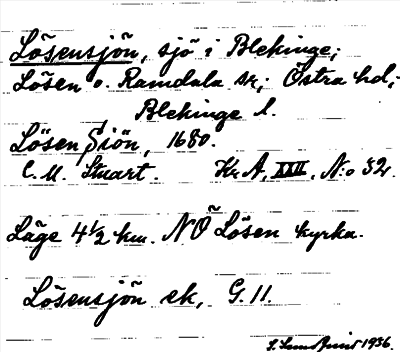 Lösensjön, sjö i Blekinge;
Lösen o. Ramdala sk; Östra hd,;
Blekinge l.
Lösen Siön, 1680.
C. M. Stuart. Kr. A, XXII, N:o 32.
Läge 4 1/2 km. NÖ Lösen kyrka.
Lösensjön ek, G. 11.
1936.